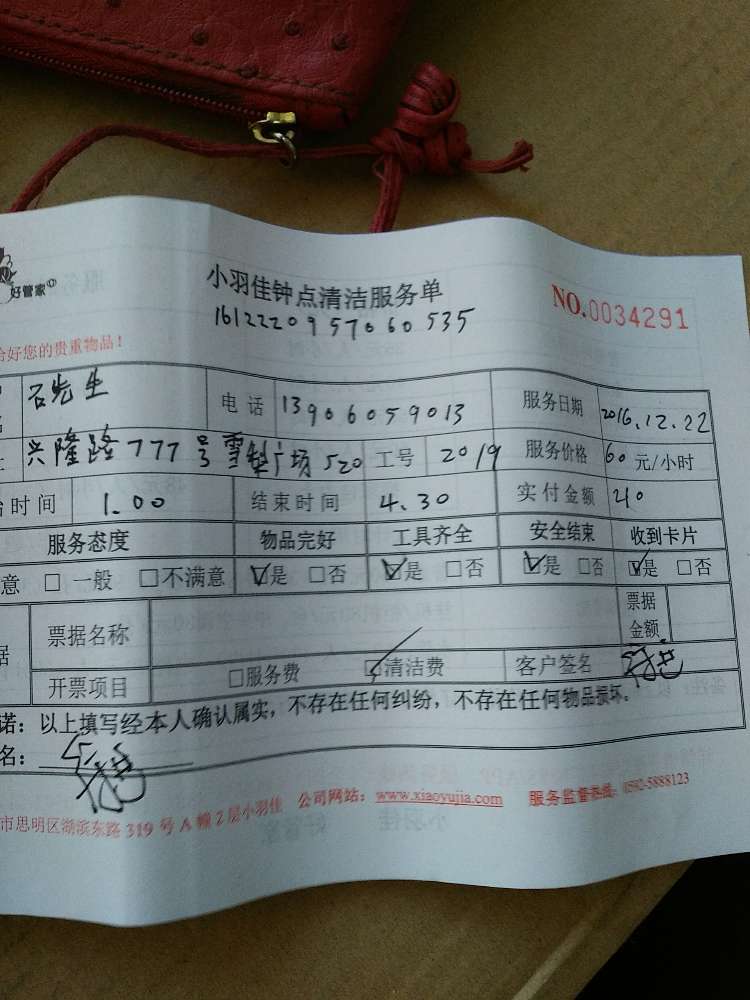 好管家
小羽佳钟点清洁服务单
NO.0034291
1612220957060535
合好您的贵重物品!
石先生 电话 13906059013 服务日期 2016.12.22
兴隆路777号雪梨广场520 工号 2019 服务价格 60元/小时
时间 1.00 结束时间 4.30 实付金额 210
服务态度 物品完好 工具齐全 安全结束 收到卡片
意 □一般 □不满意 ☑是 □否 ☑是 □否 ☑是 □否 ☑是 □否
票据名称 票据金额
开票项目 □服务费 ☑清洁费 客户签名
诺:以上填写经本人确认属实,不存在任何纠纷,不存在任何物品损坏。
名:
市思明区湖滨东路319号A幢2层小羽佳 公司网站:www.xiaoyujia.com 服务监督热线:0592-5888123